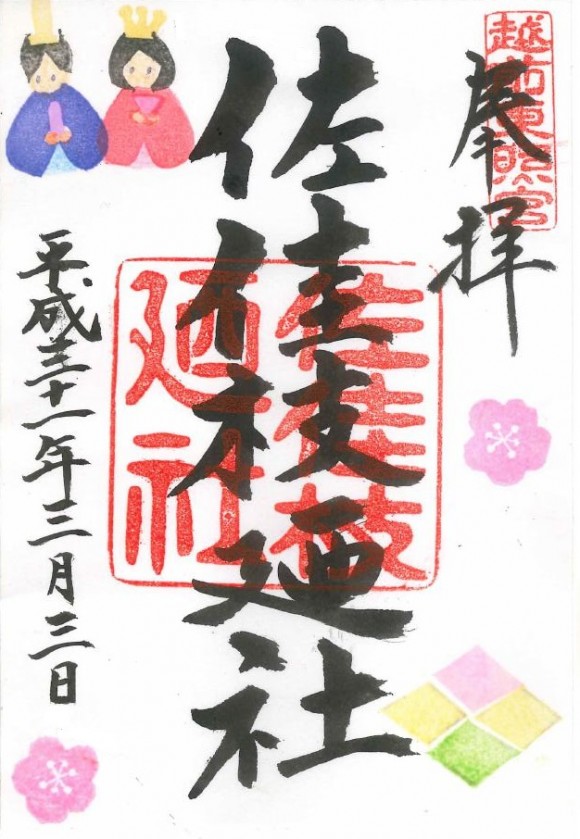 越前東照宮
奉拝
佐佳枝廼社
佐佳枝
廼社
平成三十一年三月三日